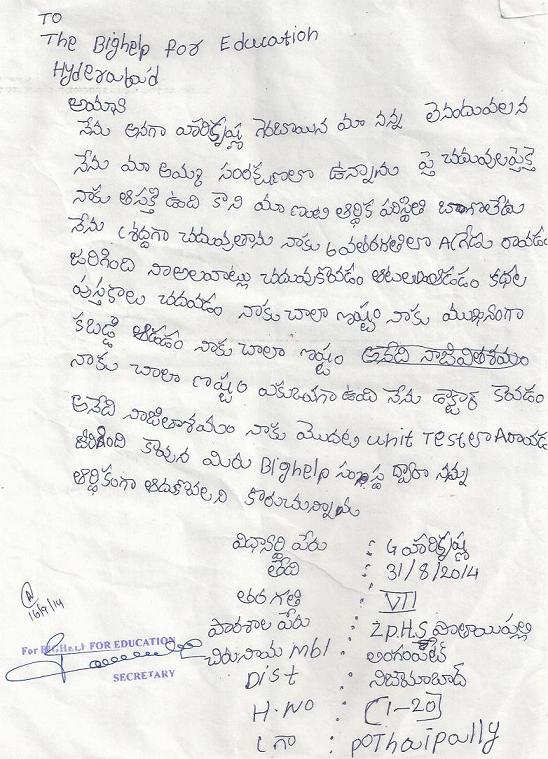 TO
The Bighelp for Education
Hyderabad
అయ్యా
నేను అనగా హరికృష్ణ మా నన్న లేనందువలన
నేను మా అమ్మ సంరక్షణలో ఉన్నాను పై చదువులపైకె
నాకు ఆసక్తి ఉది కాని మా ఇంటి ఆర్థిక పరిస్థితి బాగాలేదు
నేను శ్రద్దగా చదువుతాను నాకు 6వతరగతిలో A గ్రేడు రావడం
జరిగింది నాఅలవాట్లు చదువుకొవడం ఆటలుఆడడం కథల
పుస్తకాలు చదవడం నాకు చాలా ఇష్టం నాకు ముఖ్యంగా
కబడ్డి ఆడడం నాకు చాలా ఇష్టం అనేది నాజీవితాశయం
నాకు చాలా ఇష్టం ఎకువగా ఉది నేను డాక్టార్ కావడం
అనేది నాజీతాశయం నాకు మొదటి unit Testలో A రావడం
జరిగింది కావున మీరు Bighelp సంస్థ ద్వారా నన్ను
ఆర్థికంగా ఆదుకోవలని కోరుచున్నాను
విధ్యార్థి పేరు : G హరికృష్ణ
తేది : 31/8/2014
తరగతి : VII
పాఠశాల పేరు : Z.P.H.S పోతాయిపల్లి
చిరునామ mbl : లింగంపేట్
Dist : నిజామాబాద్
H.NO : [1-20]
గ్రా : pothaipally
16/9/14
For BIGHELP FOR EDUCATION
SECRETARY